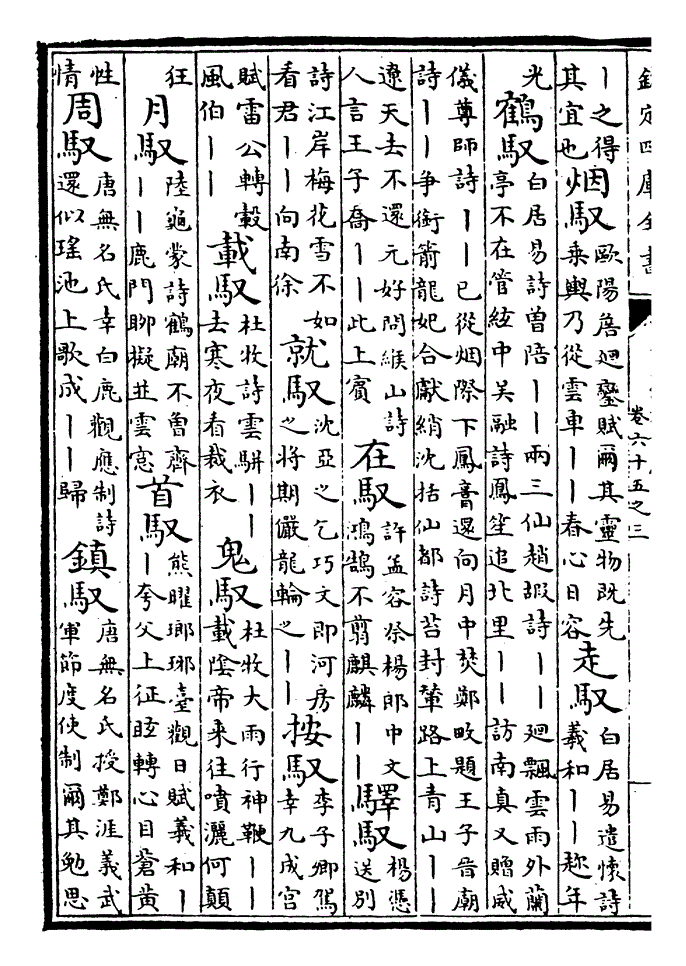 欽定四庫全書
卷六十五之三
丨之得烟馭歐陽詹廻鑾賦爾其靈物既先走馭白居易遣懷詩
其宜也烟馭乘輿乃從雲車丨丨春心日容走馭羲和丨丨趂年
光鶴馭白居易詩曽陪丨丨兩三仙趙嘏詩丨丨廻飄雲雨外蘭
鶴馭亭不在管絃中吴融詩鳳笙追北里丨丨訪南真又贈威
儀尊師詩丨丨已從烟際下鳳膏還向月中焚鄭畋題王子晉廟
詩丨丨爭銜箭龍妃合獻綃沈括仙都詩苔封輦路上青山丨丨
遼天去不還元好問緱山詩在馭許孟容祭楊郎中文驛馭楊憑
人言王子喬丨丨此上賓在馭鴻鵠不翦麒麟丨丨驛馭送別
詩江岸梅花雪不如就馭沈亞之乞巧文即河房按馭李子卿駕
看君丨丨向南徐就馭之將期儼龍輪之丨丨按馭幸九成宫
賦雷公轉轂載馭杜牧詩雲駢丨丨鬼馭杜牧大雨行神鞭丨丨
風伯丨丨載馭去寒夜看裁衣鬼馭載陰帝来往噴灑何顛
狂月馭陸龜蒙詩鶴廟不魯齊首馭熊曜瑯琊臺觀日賦羲和丨
月馭丨丨鹿門聊擬並雲窻首馭丨夸父上征眩轉心目蒼黄
性周馭唐無名氏幸白鹿觀應制詩鎮馭唐無名氏授鄭涯義武
情周馭還似瑶池上歌成丨丨歸鎮馭軍節度使制爾其勉思